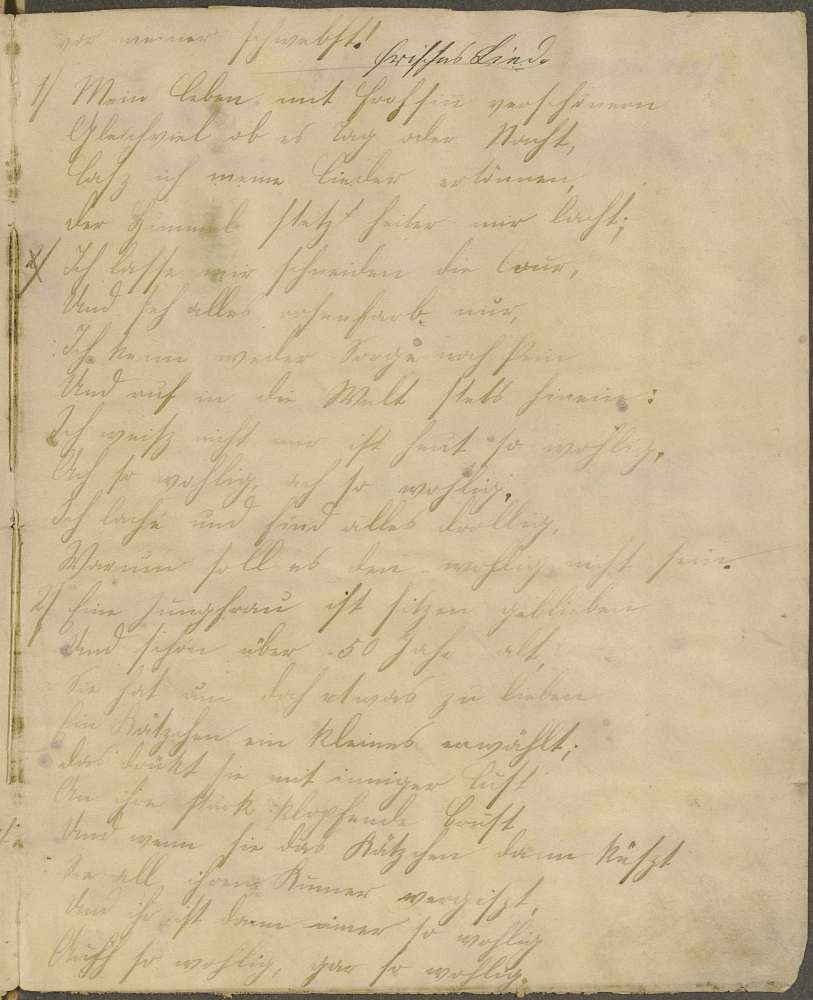 vor meiner schwebst!
frisches Lied.
1) Mein Leben mit Frohsinn verschönern
Gleichviel ob es Tag oder Nacht,
Lasz ich meine Lieder ertönnen,
der Himmel stetz heiter mir lacht;
Ich lasse mir schneiden die Cour,
Und seh alles rosenfarb nur,
Ich kenn weder Sorge noch Pein
Und ruf in die Welt stets hinein:
Ich weisz nicht mir ist heut so wohlig,
Ach so wohlig, ach so wohlig,
Ich lache und find alles drollig,
Warum soll es den wohlig nicht sein.
2) Eine Jungfrau ist sitzen geblieben
Und schon über 50 Jahr alt,
Sie hat um doch etwas zu lieben
Ein Kätzchen ein kleines erwählt;
das drükt sie mit inniger Lust
An ihre stark klopfende Brust
Und wenn sie das Kätzchen dann küszt
Sie all ihren Kumer vergiszt,
Und ihr ist dann immer so wohlig
Auch so wohlig, gar so wohlig.